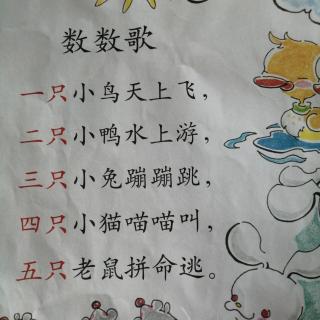 数数歌
一只小鸟天上飞，
二只小鸭水上游，
三只小兔蹦蹦跳，
四只小猫喵喵叫，
五只老鼠拼命逃。